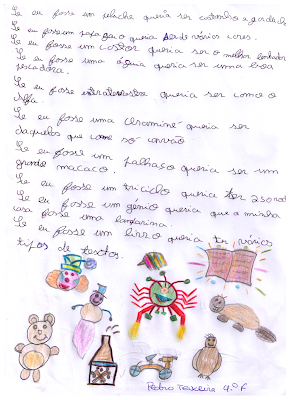 Se eu fosse um peluche queria ser castanho e gorducho
Se eu fosse um sapo queria ser de várias cores.
Se eu fosse um castor queria ser o melhor lenhador
Se eu fosse uma águia queria ser uma boa
pescadora.
Se eu fosse extraterrestre queria ser como o
Se eu fosse uma queria ser
daquelas que come só carvão
Se eu fosse um palhaço queria ser um
grande macaco.
Se eu fosse um triciclo queria ter 2 rodas
Se eu fosse um génio queria que a minha
casa fosse uma
Se eu fosse um livro queria ter vários
tipos de textos.
Pedro Teixeira 4.º F